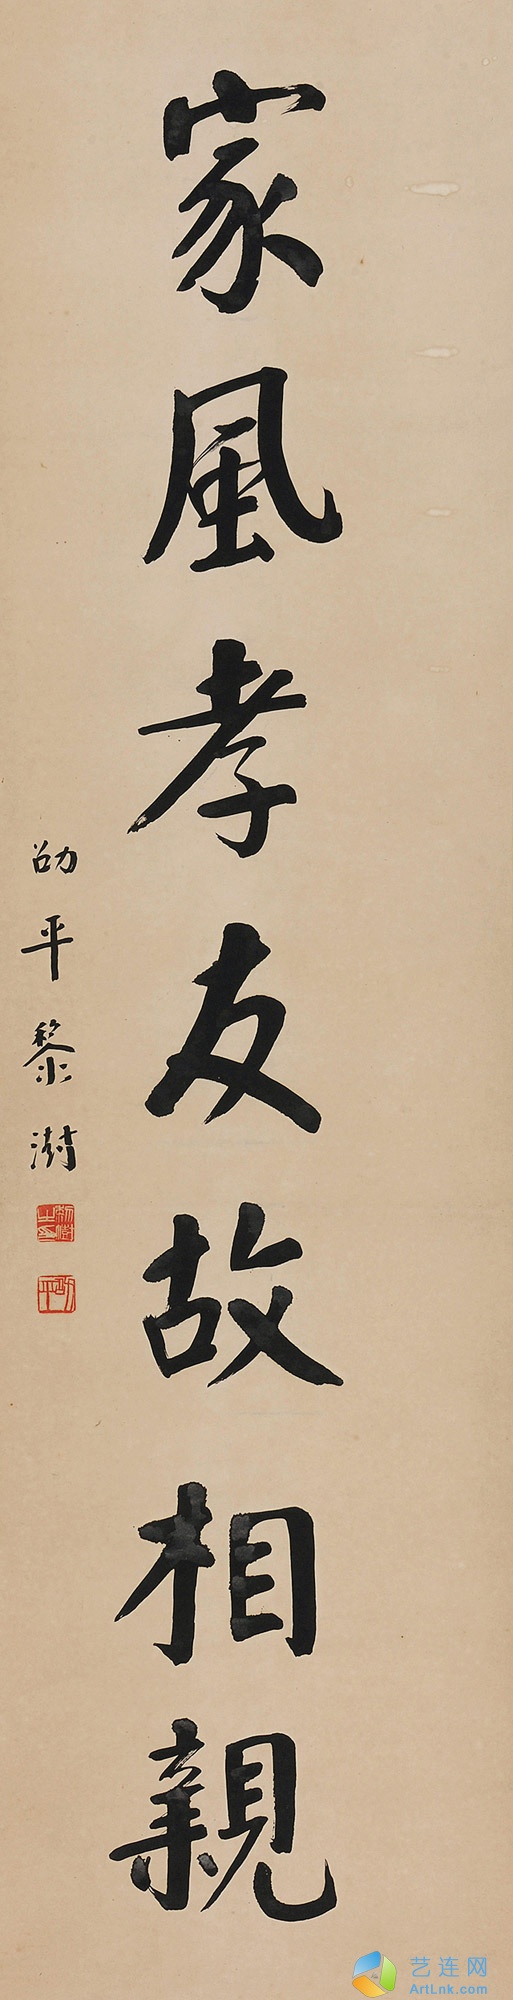 家風孝友故相親
劭平黎澍
黎澍之印
劭平
艺连网
ArtLnk.com